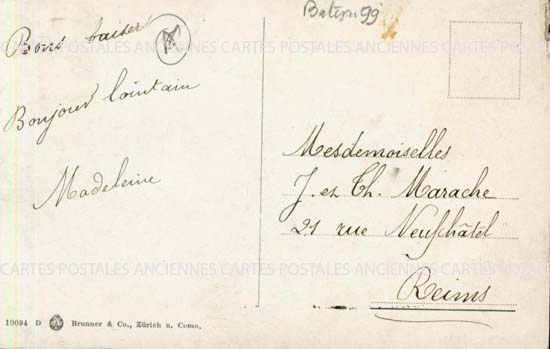 Batem 99
Bons baisers
Bonjour lointain
Madeleine
Mesdemoiselles
J. et Th. Marache
21 rue Neufchâtel
Reims
CARTES POSTALES ANCIENNES CARTES POSTALES ANCIENNES CARTES
CARTES POSTALES ANCIENNES CARTES POSTALES ANCIENNES
10094 D Brunner & Co., Zürich u. Como.